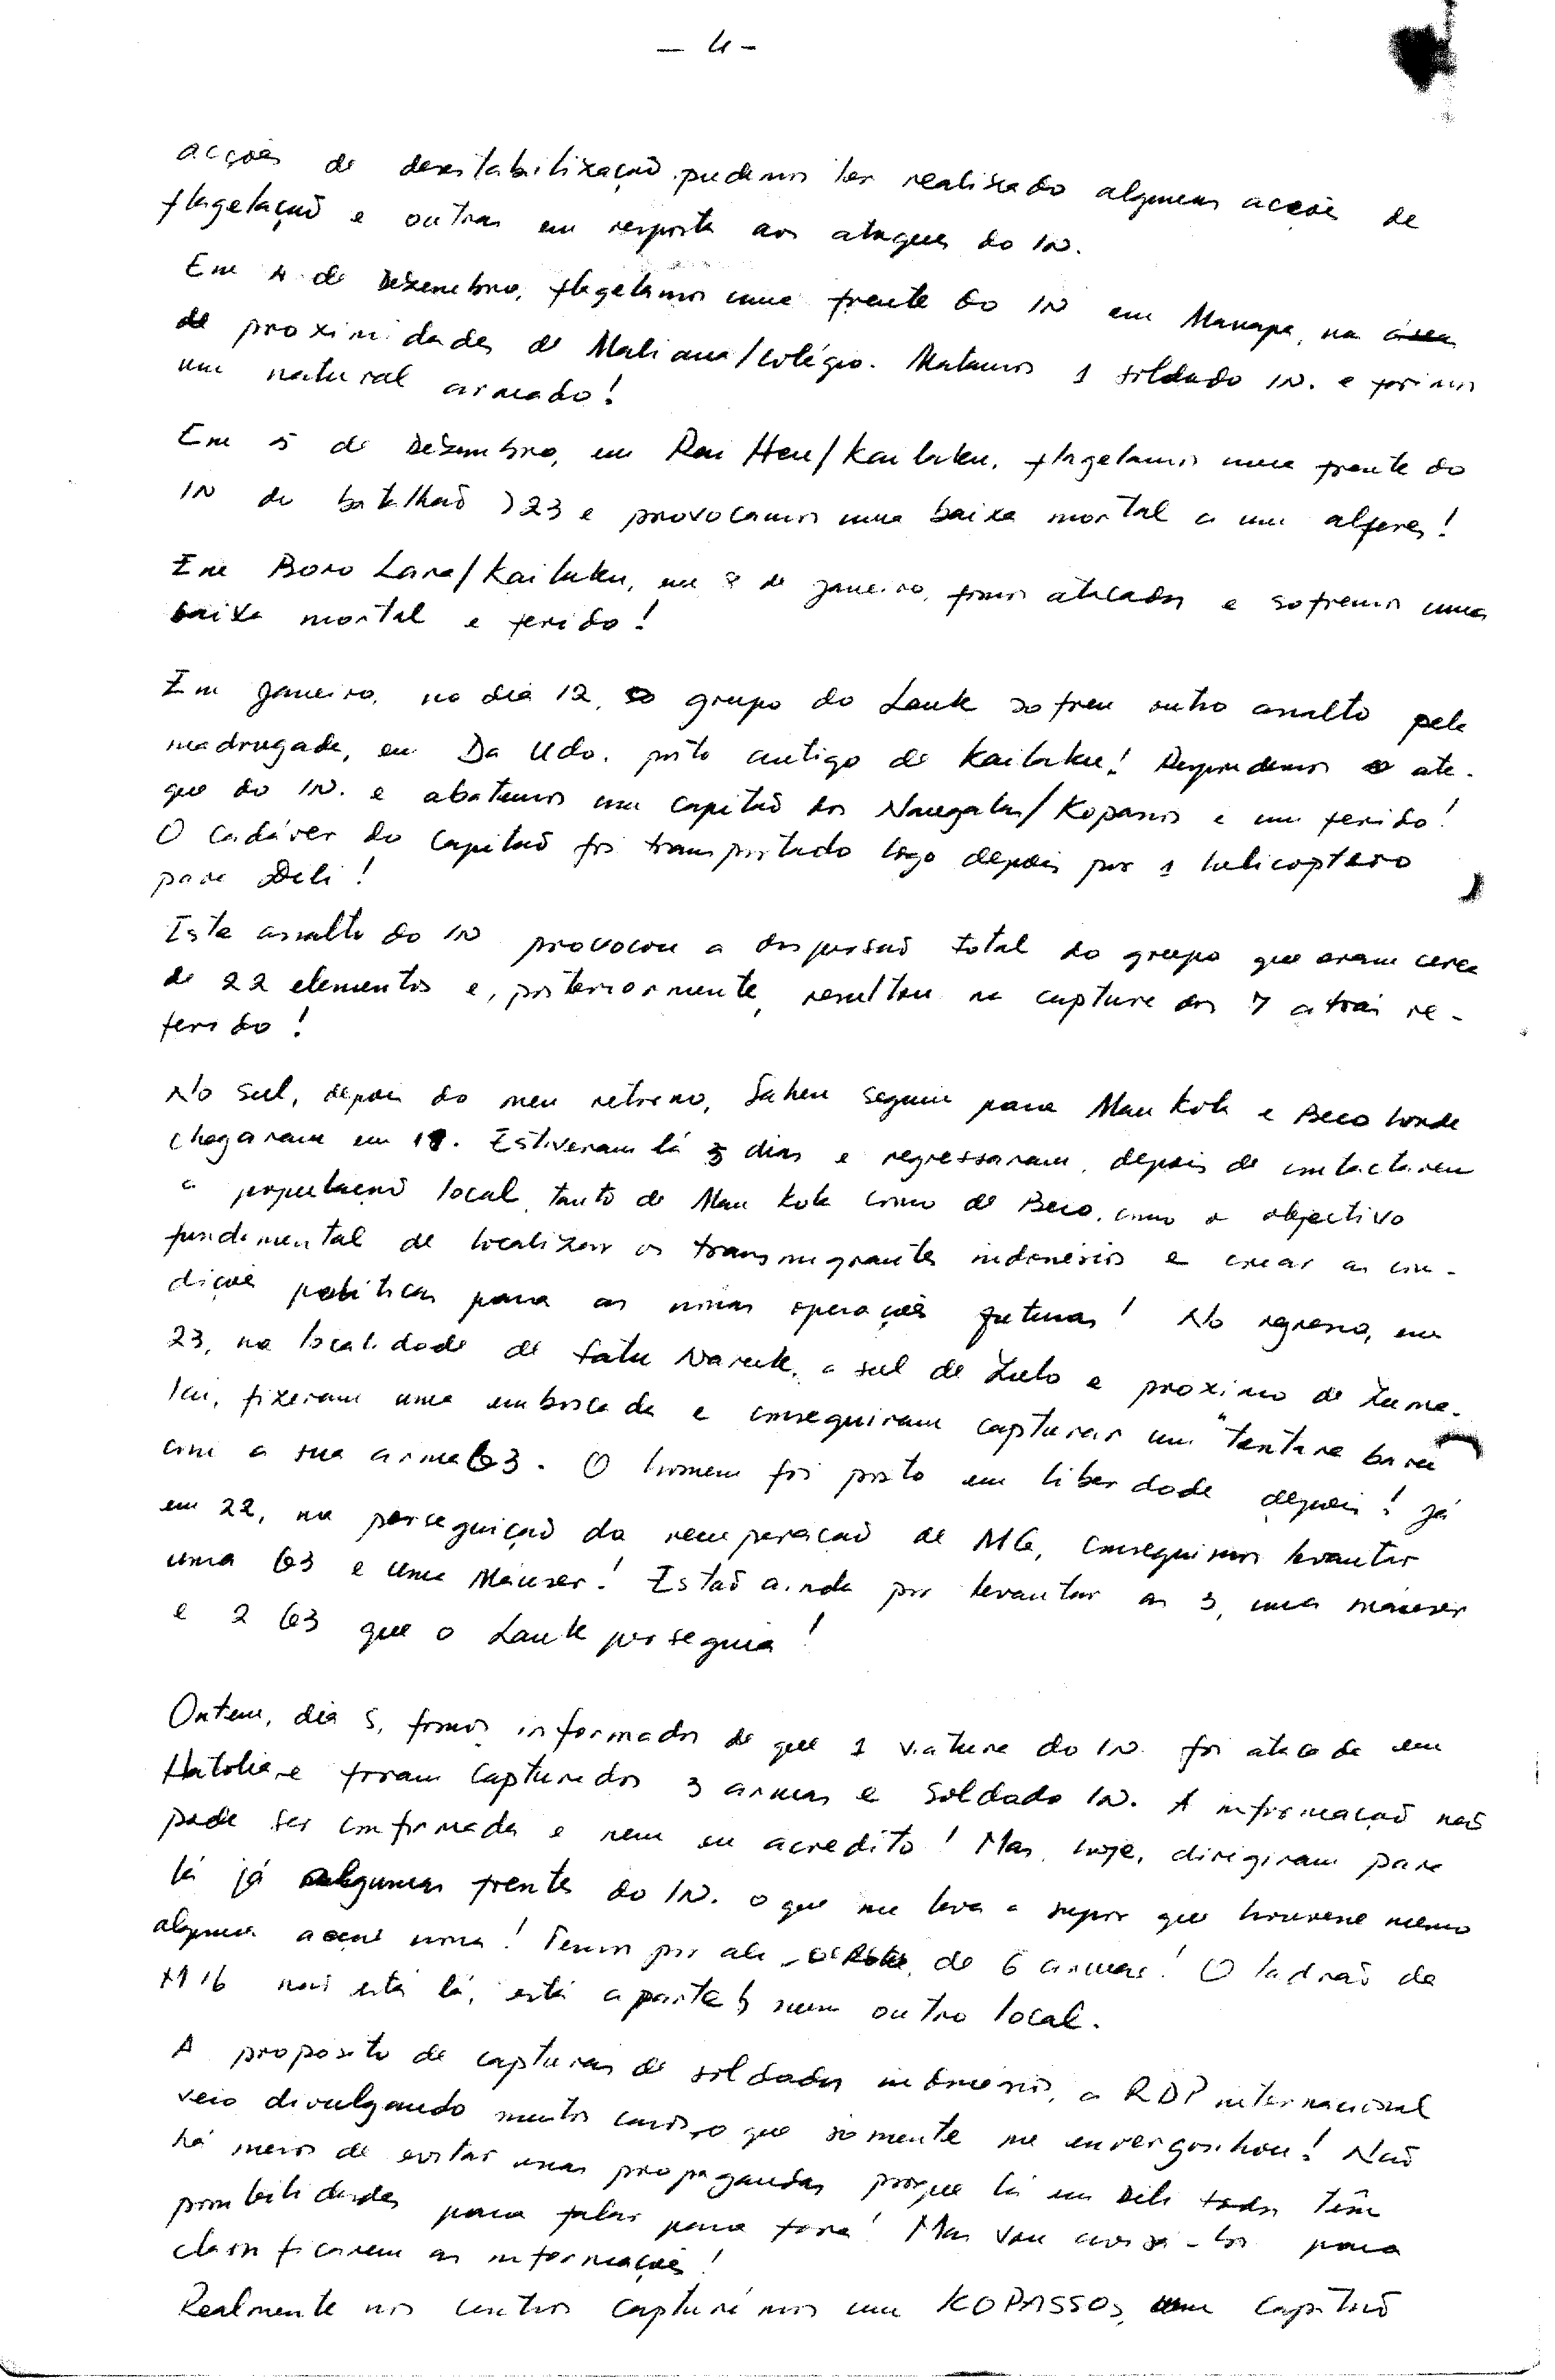 - 4 -
acções de desestabilização, pudemos ter realizado algumas acções de
flagelação e outras em resposta aos ataques do IN.
Em 4 de Dezembro, flagelamos uma frente do IN em Manapa, na área
de proximidades de Maliana/colégio. Matamos 1 soldado IN. e ferimos
um natural armado!
Em 5 de Dezembro, em Rai Heu/Kailaku, flagelamos uma frente do
IN do batalhão 723 e provocamos uma baixa mortal a um alferes!
Em Boro Lara/Kailaku, em 8 de Janeiro, fomos atacados e sofremos uma
baixa mortal e ferido!
Em Janeiro, no dia 12, o grupo do Lauk sofreu outro assalto pela
madrugada, em Da Udo, posto antigo de Kailaku! Respondemos o ata-
que do IN. e abatemos um capitão dos Nanggalas/Kopassos e um ferido!
O cadáver do capitão foi transportado logo depois por 1 helicoptero
para Dili!
Este assalto do IN provocou a dispersão total do grupo que eram cerca
de 22 elementos e, posteriormente, resultou na captura dos 7 atrás re-
ferido!
No sul, depois do meu retorno, Saheu seguiu para Mau Kola e Beco londe
chegaram em 18. Estiveram lá 3 dias e regressaram, depois de contactarem
a população local, tanto de Mau Kola como de Beco, como o objectivo
fundamental de localizar os transmigrantes indonésios e criar as con-
dições políticas para as nossas operações futuras! No regresso, em
23, na localidade de Fatu Naruk, a sul de Zulo e proximo de Zuma-
lai, fizeram uma emboscada e conseguiram capturar um "tentara baru"
com a sua arma G3. O homem foi posto em liberdade depois! Já
em 22, na perseguição da recuperação de MG, conseguimos levantar
uma G3 e uma Mauser! Estão ainda por levantar as 3, uma mauser
e 2 G3 que o Lauk perseguia!
Ontem, dia 5, fomos informados de que 1 viatura do IN. foi atacada em
Hatolia e foram capturados 3 armas e soldado IN. A informação não
pode ser confirmada e nem eu acredito! Mas, hoje, dirigiram para
lá já algumas frentes do IN. o que me leva a supor que houvesse mesmo
alguma acção nossa! Temos por ali de 6 armas! O ladrão da
M16 não está lá, está aparte num outro local.
A proposito de capturas de soldados indonésios, a RDP internacional
veio divulgando muitos casos, o que somente me envergonhou! Não
há meios de evitar essas propagandas porque lá em Dili todos têm
possibilidades para falar para fora! Mas vou avisá-los para
classificarem as informações!
Realmente nós centros capturámos um KOPASSOS, um capitão